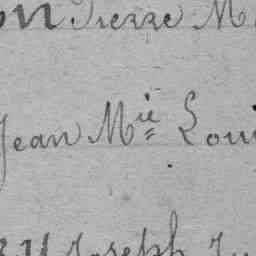 on Pierre M
Jean Mie Loui
Joseph